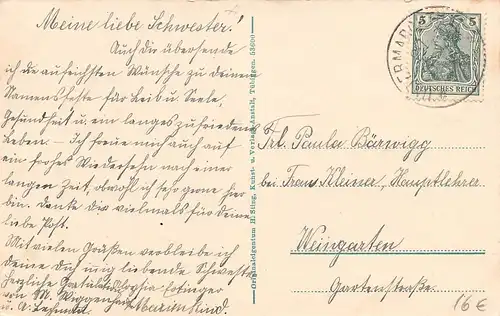 Meine liebe Schwester!
Auch dir übersende
ich die aufrichtigsten Wünsche zu deinem
Namensfeste für Leib u. Seele,
Gesundheit u. ein langes zufriedenes
Leben. – Ich freue mich auch auf
ein frohes Wiedersehn nach einer
langen Zeit, obwohl ich sehr gerne hier
bin. Danke dir vielmals für deine
liebe Post.
Mit vielen Grüßen verbleibe ich
deine dich innig liebende Schwester
Herzliche Gratulation Sophia
von M. Wiggenhauser
u. A. Lehmann
Originaleigentum H. Sting, Kunst- u. Verlag-Anstalt, Tübingen. 53600
5 5
DEUTSCHES REICH
Frl. Paula Bärwigg
bei Franz Kleiner, Hauptlehrer
Weingarten
Gartenstraße
16€